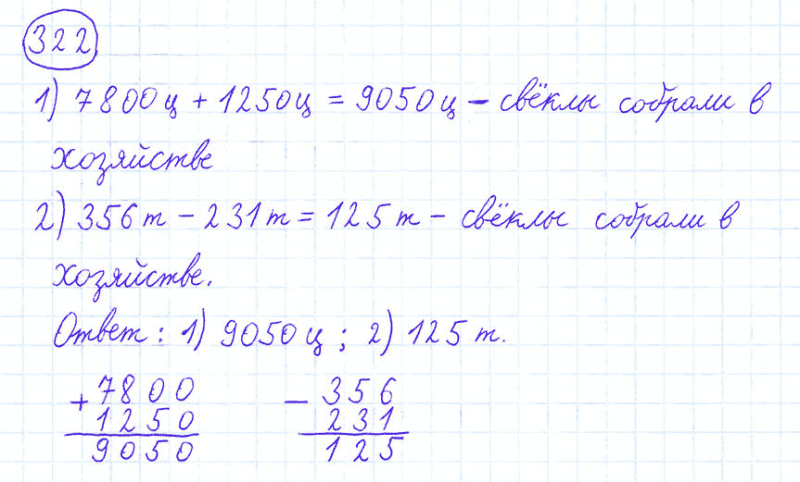 322
1) 7800 ц + 1250 ц = 9050 ц – свёклы собрали в
хозяйстве
2) 356 т – 231 т = 125 т – свёклы собрали в
хозяйстве.
Ответ: 1) 9050 ц; 2) 125 т.
+ 7800 – 356
1250 231
9050 125